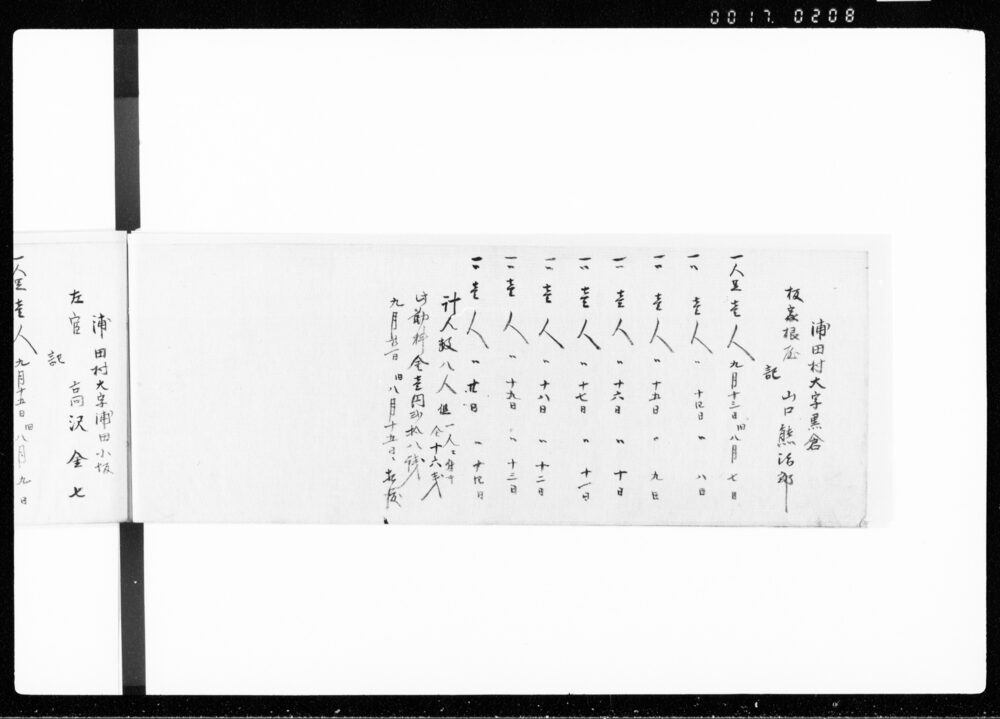 0017.0208
浦田村大字黒倉
板家根屋 山口熊治郎
記
一人足壱人 九月十三日 旧八月 七日
一〃 壱人 〃 十四日 〃 八日
一〃 壱人 〃 十五日 〃 九日
一〃 壱人 〃 十六日 〃 十日
一〃 壱人 〃 十七日 〃 十一日
一〃 壱人 〃 十八日 〃 十二日
一〃 壱人 〃 十九日 〃 十三日
一〃 壱人 〃 廿日 〃 十四日
計人数八人 但一人ニ付
金十六銭
此 料金壱円弐拾八銭
九月廿一日 旧八月十五日
浦田村大字浦田小坂
左官 高沢金七
記
一人足壱人 九月十五日 旧八月九日